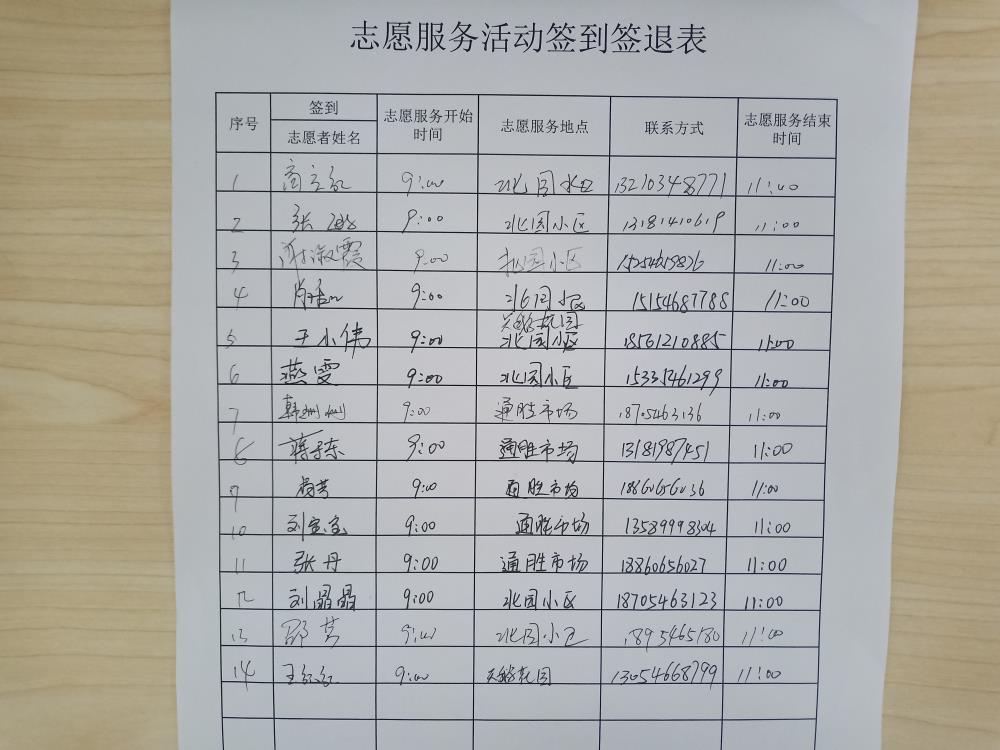 志愿服务活动签到签退表
序号 签到 志愿者姓名 志愿服务开始时间 志愿服务地点 联系方式 志愿服务结束时间
1 商立红 9:00 北园小区 13210348771 11:00
2 张 9:00 北园小区 13181410619 11:00
3 淑霞 9:00 北园小区 11:00
4 9:00 北园小区 15154687788 11:00
天鹅花园
5 王小伟 9:00 北园小区 18561210885 11:00
6 燕雯 9:00 北园小区 15335461299 11:00
7 韩 9:00 通胜市场 11:00
8 蒋东 9:00 通胜市场 13181987451 11:00
9 9:00 通胜市场 18660656036 11:00
10 刘宝宝 9:00 通胜市场 13589998304 11:00
11 张丹 9:00 通胜市场 18860656027 11:00
12 刘晶晶 9:00 北园小区 18705463123 11:00
13 邵 9:00 北园小区 11:00
14 王红红 9:00 天鹅花园 13054668799 11:00